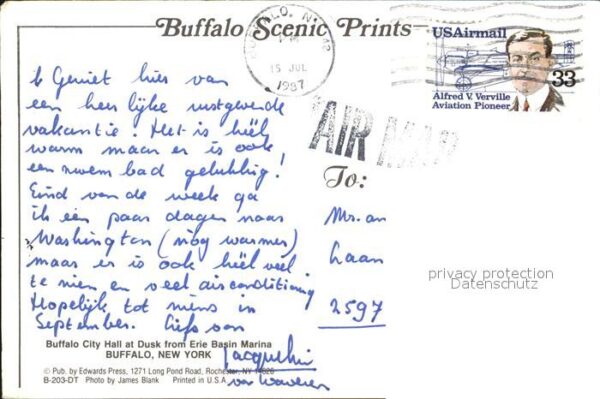 Buffalo Scenic Prints
BUFFALO, N.Y. 142
PM
15 JUL
1987
USAirmail
33
Alfred V. Verville
Aviation Pioneer
AIR MAIL
k Geniet hier van
een heerlijke rustgevende
vakantie! Het is héél
warm maar er is ook
een zwembad gelukkig!
Eind van de week ga
ik een paar dagen naar
Washington (nóg warmer)
maar er is ook héél veel
te zien en veel airconditioning
Hopelijk tot ziens in
September. Liefs van
Jacqueline
van
To:
Mr. an
Laan
2597
privacy protection
Datenschutz
Buffalo City Hall at Dusk from Erie Basin Marina
BUFFALO, NEW YORK
© Pub. by Edwards Press, 1271 Long Pond Road, Rochester, NY 14626
B-203-DT Photo by James Blank Printed in U.S.A.